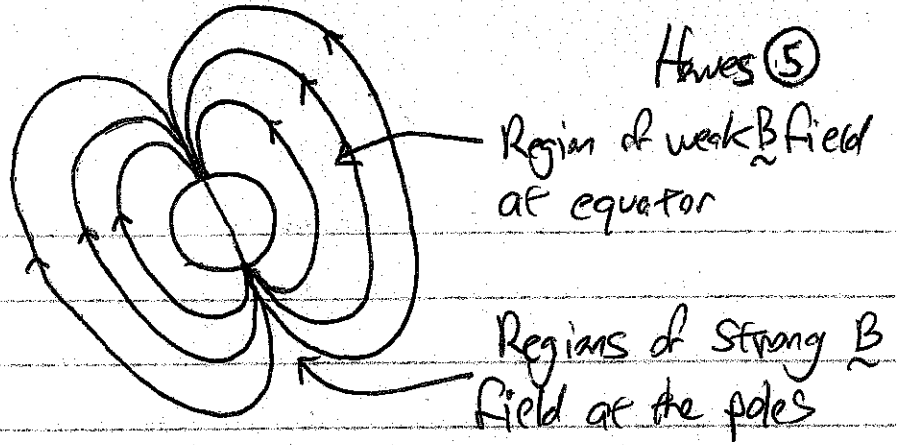 Howes ⑤
Region of weak B field
at equator
Regions of strong B
field at the poles